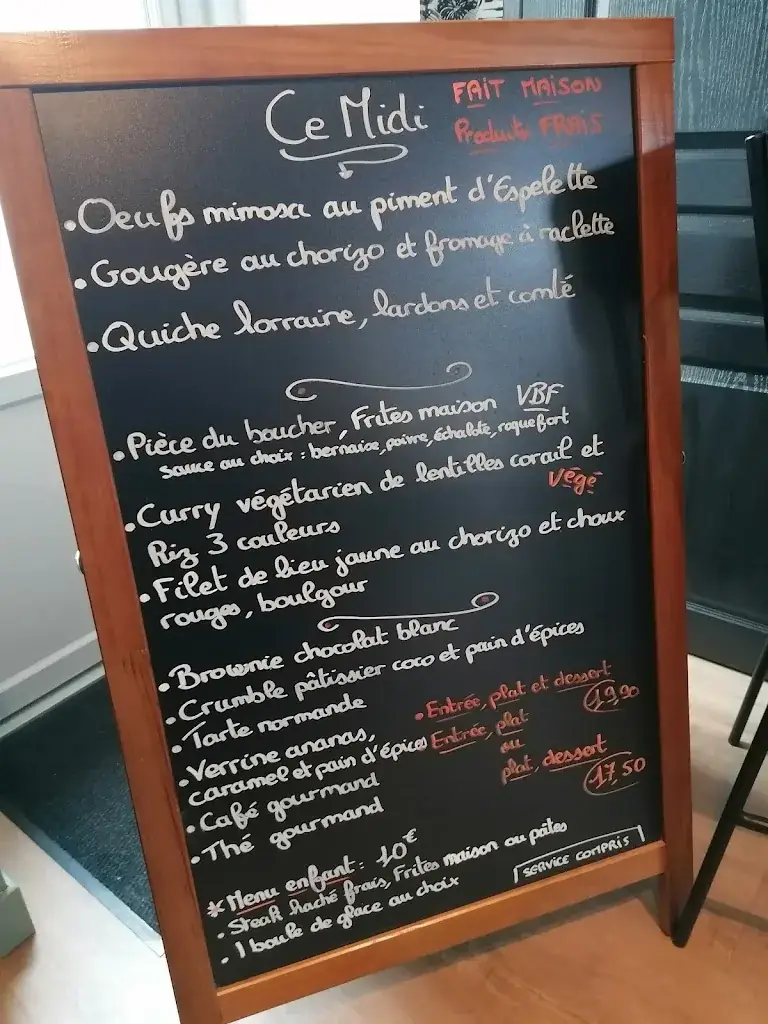 Ce Midi
FAIT MAISON
Produits FRAIS
• Oeufs mimosa au piment d'Espelette
• Gougère au chorizo et fromage à raclette
• Quiche lorraine, lardons et comté
• Pièce du boucher, Frites maison VBF
sauce au choix : bernaise, poivre, échalote, roquefort
• Curry végétarien de lentilles corail et
Riz 3 couleurs
Végé
• Filet de lieu jaune au chorizo et choux
rouges, boulgour
• Brownie chocolat blanc
• Crumble pâtissier coco et pain d'épices
• Tarte normande
• Verrine ananas,
caramel et pain d'épices
• Café gourmand
• Thé gourmand
• Entrée, plat et dessert
19,90
Entrée, plat
ou
plat, dessert
17,50
* Menu enfant : 10€
• Steak haché frais, Frites maison ou pâtes
• 1 boule de glace au choix
SERVICE COMPRIS